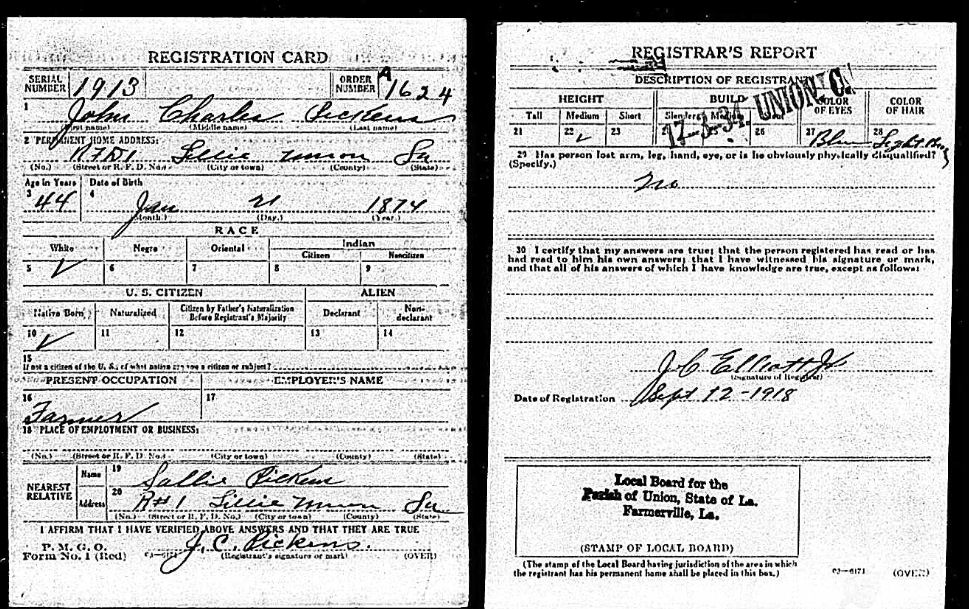 REGISTRATION CARD
SERIAL NUMBER 1913 ORDER NUMBER A 1624
1 John Charles Pickens
(First name) (Middle name) (Last name)
2 PERMANENT HOME ADDRESS:
R.F.D.1 Lillie Union La
(No.) (Street or R. F. D. No.) (City or town) (County) (State)
Age in Years Date of Birth
3 44 4 Jan 21 1874
(Month.) (Day.) (Year.)
RACE
White Negro Oriental Indian
Citizen Noncitizen
5 ✓ 6 7 8 9
U. S. CITIZEN ALIEN
Native Born Naturalized Citizen by Father's Naturalization Before Registrant's Majority Declarant Non-declarant
10 ✓ 11 12 13 14
15
If not a citizen of the U. S., of what nation are you a citizen or subject?
PRESENT OCCUPATION EMPLOYER'S NAME
16 Farmer 17
18 PLACE OF EMPLOYMENT OR BUSINESS:
(No.) (Street or R. F. D. No.) (City or town) (County) (State)
NEAREST RELATIVE Name 19 Sallie Pickens
Address 20 R#1 Lillie Union La
(No.) (Street or R. F. D. No.) (City or town) (County) (State)
I AFFIRM THAT I HAVE VERIFIED ABOVE ANSWERS AND THAT THEY ARE TRUE
P. M. G. O.
Form No. 1 (Red) 03—6171 J. C. Pickens
(Registrant's signature or mark) (OVER)
REGISTRAR'S REPORT
17-3-34. UNION. C.
DESCRIPTION OF REGISTRANT
HEIGHT BUILD COLOR OF EYES COLOR OF HAIR
Tall Medium Short Slender Medium
21 22 ✓ 23 26 27 Blue 28 Light
29 Has person lost arm, leg, hand, eye, or is he obviously physically disqualified?
(Specify.)
No
30 I certify that my answers are true; that the person registered has read or has
had read to him his own answers; that I have witnessed his signature or mark,
and that all of his answers of which I have knowledge are true, except as follows:
J. C. Elliott Jr
(Signature of Registrar)
Date of Registration Sept 12-1918
Local Board for the
Parish of Union, State of La.
Farmerville, La.
(STAMP OF LOCAL BOARD)
(The stamp of the Local Board having jurisdiction of the area in which
the registrant has his permanent home shall be placed in this box.)
03—6171 (OVER)